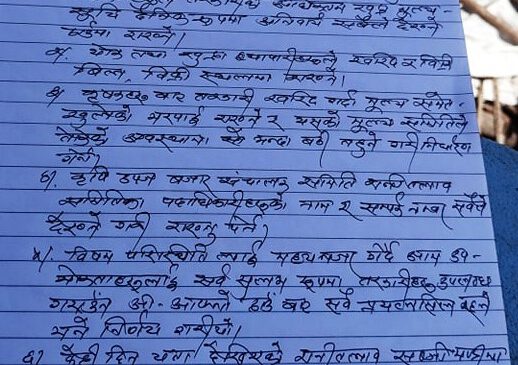 सूचि दैनिक रूपमा अनिवार्य सबैले देख्ने
ठाउँमा राख्ने।
थोक तथा खुद्रा व्यापारीहरूले खरिद र बिक्रि
बिल, बिक्री स्थलमा राख्ने।
कृषकहरू बाट तरकारी खरिद गर्दा मूल्य समेत
खुलेको भरपाई राख्ने र यसको मूल्य समितिले
तोकेको भन्दा बढी नहुने गरी निर्धारण
गर्ने।
कृषि उपज बजार संचालन समिति रानीतलाव
समितिका पदाधिकारीहरूको नाम र सम्पर्क नम्बर सबैले
देख्ने गरी राख्नु पर्ने।
५। विषम परिस्थिति लाई मध्यनजर गर्दै आम उप-
भोक्ताहरूलाई सर्व सुलभ रूपमा तरकारीहरू उपलब्ध
गराउन आ-आफ्नो ठाउँ बाट सबै प्रयत्नसिल रहने
भन्ने निर्णय गरीयो।
६। केही दिन यता देखिएको रानीतलाव सब्जी मण्डीमा